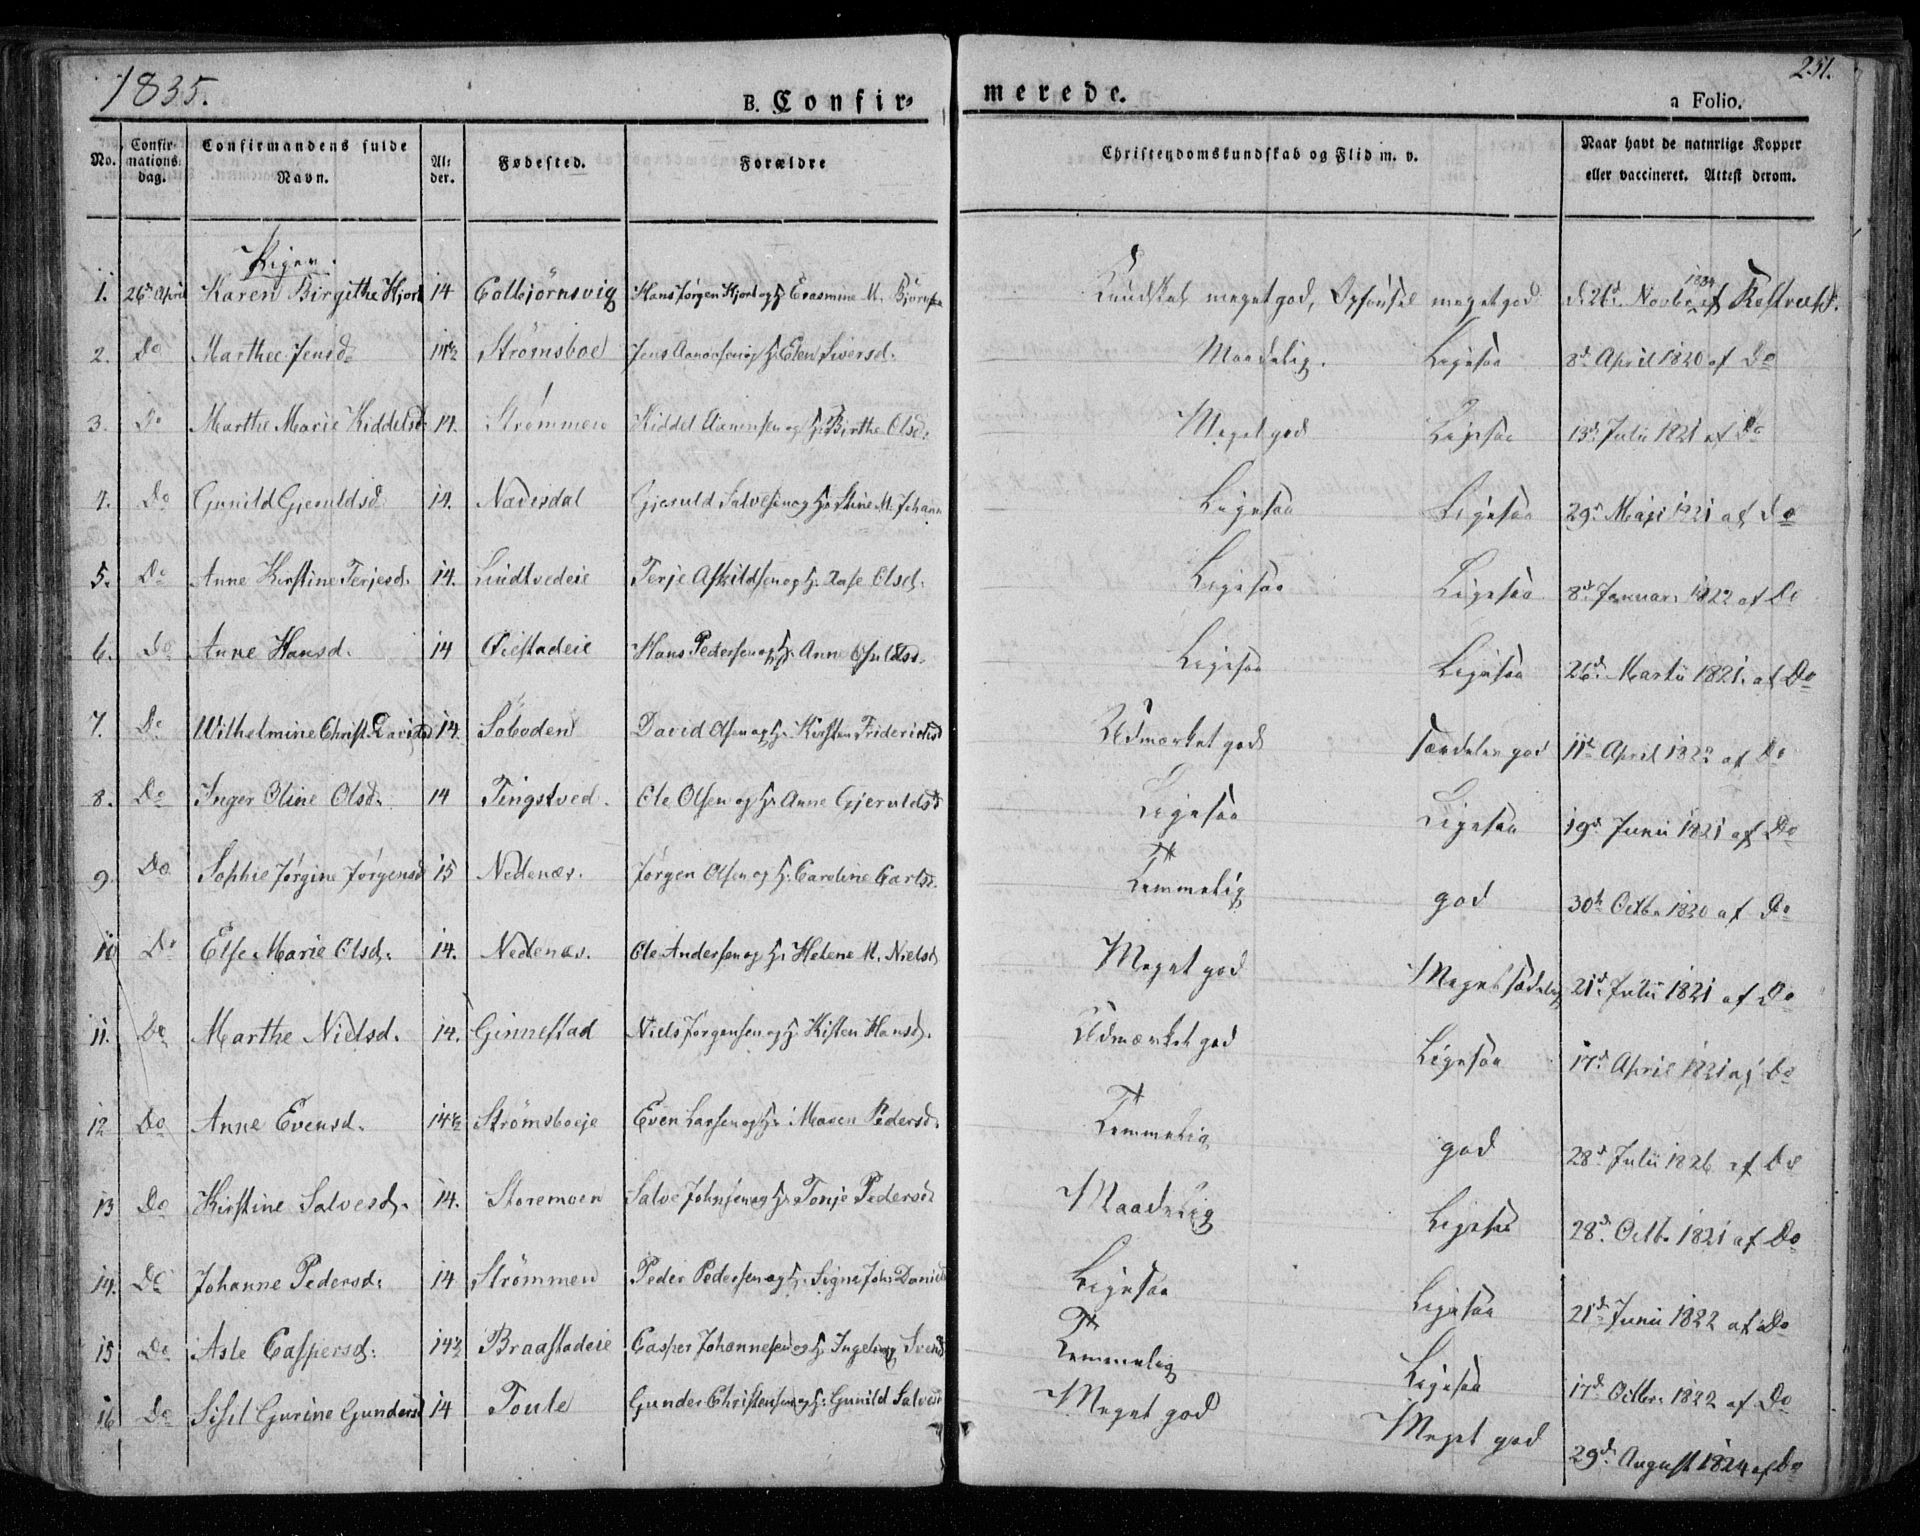 1835.
B. Confir-
merede.
251.
a Folio.
No. Confirmations dag. Confirmandens fulde Navn. Alder. Fødested. Forældre Christendomskundskab og Flid m. v. Naar havt de naturlige Kopper eller vaccineret. Attest derom.
Piger.
1. 26de April Karen Birgithe Hjort 14 Colbjörnsvig Hans Jørgen Hjort og H. Erasmine M. Björnsen Kundskab meget god, Opførsel meget god d. 26d. Novbr. 1834 af
2. Do Marthe Jensd. 14½ Strømsboe Jens Aanonsen og H. Elen Siversd. Maadelig. Ligesaa 8d. April 1820 af Do
3. Do Marthe Marie Kiddelsd. 14. Strømmen Kiddel Aanensen og H. Birthe Olsd. Meget god Ligesaa 13d. Julii 1821 af Do
4. Do Gunild Gjeruldsd. 14. Nædesdal Gjeruld Salvesen og H. Stine M. Johann Ligesaa Ligesaa 29d. Maji 1821 af Do
5. Do Anne Kirstine Terjesd. 14. Lindtvedeie Terje Askildsen og H. Aase Olsd. Ligesaa Ligesaa 8d. Januar. 1822 af Do
6. Do Anne Hansd. 14 Øiestadeie Hans Pedersen og H. Anne Ligesaa Ligesaa 26d. Martii 1821. af Do
7. Do Wilhelmine Christ. Davidsd 14. Söboden David Olsen og H. Kirsten Friderichsd Udmærket god Særdeles god 11d. April 1822 af Do
8. Do Inger Oline Olsd. 14 Tingstved. Ole Olsen og H. Anne Gjeruldsd Ligesaa Ligesaa 19d. Junii 1821 af Do
9. Do Sophie Jørgine Jørgensd 15 Nedenæs. Jørgen Olsen og H. Caroline Carlsd. Temmelig god 30d. Octb. 1820 af Do
10 Do Else Marie Olsd. 14. Nedenæs. Ole Andersen og H. Helene M. Nielsd Meget god Meget sædelig 21d. Julii 1821 af Do
11. Do Marthe Nielsd. 14. Ginnestad Niels Jørgensen og H. Kisten Hansd. Udmærket god Ligesaa 17d. April 1821 af Do
12 Do Anne Evensd. 14½ Strømsboeje Even Larsen og H. Maren Pedersd. Temmelig god 28d. Julii 1826 af Do
13 Do Kirstine Salvesd. 14. Storemoen Salve Johnsen og H. Tonje Pedersd Maadelig Ligesaa 28d. Octb. 1821 af Do
14. Do Johanne Pedersd. 14 Strømmen Peder Pedersen og H. Signe Joh. Danielsd Ligesaa Ligesaa 21d. Junii 1822 af Do
15 Do Asle Caspersd. 14½ Braastadeie Casper Johannesen og H. Ingeborg Svend Temmelig Ligesaa 17d. Octbr. 1822 af Do
16 Do Sisil Gurine Gundersd 14 Toule Gunder Christensen og H. Gunild Salvesd Meget god Meget god 29d. August 1824 af Do